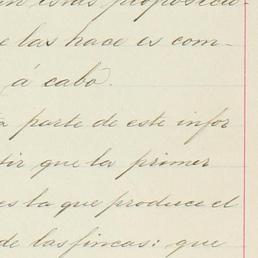 an estas proposicio-
e las hace es com-
á cabo.
a parte de este infor
tir que la primer
es la que produce el
de las fincas: que